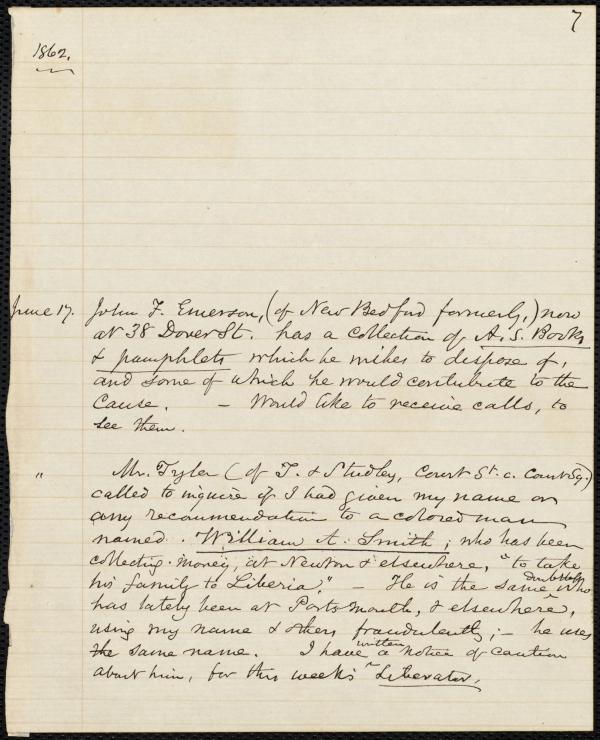 7
1862.
June 17. John F. Emerson, (of New Bedford formerly,) now
at 38 Dover St. has a collection of A. S. Books
& pamphlets which he wishes to dispose of,
and some of which he would contribute to the
Cause. – Would like to receive calls, to
see them.
" Mr. Tyler (of T. & Studley, Court St. c. Court Sq.)
called to inquire if I had given my name or
any recommendation to a colored man
named William A. Smith, who has been
collecting money, at Newton & elsewhere, "to take
his family to Liberia." – He is the same doubtless who
has lately been at Portsmouth, & elsewhere,
using my name & others fraudulently; – he uses
the same name. I have written a notice of caution
about him, for this week's Liberator.